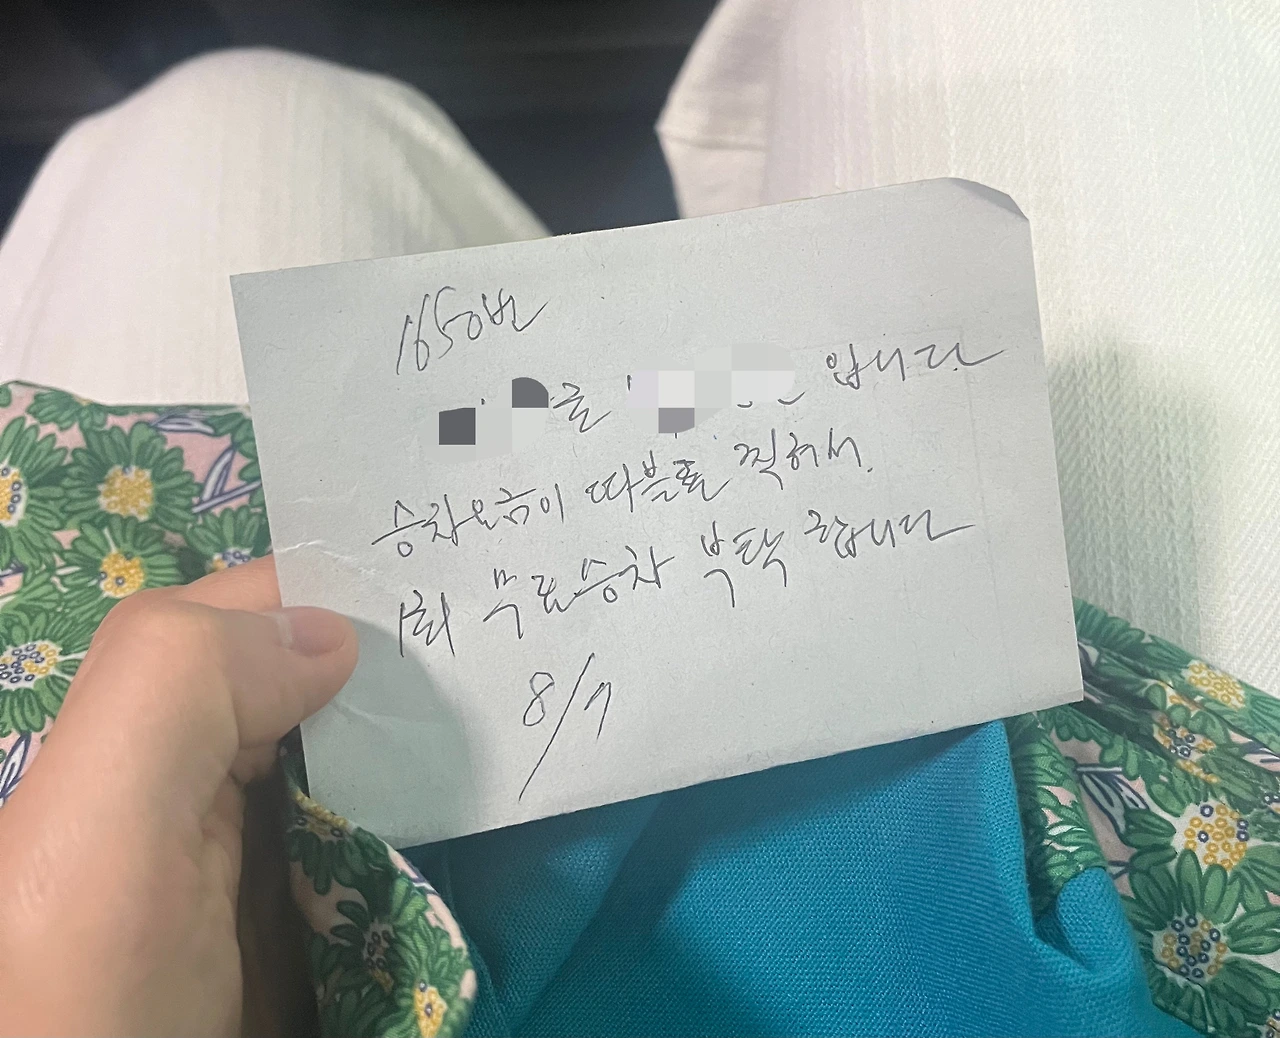 1650번
글 입니다
승차요금이 따블로 찍혀서
1회 무료승차 부탁 합니다
8/7